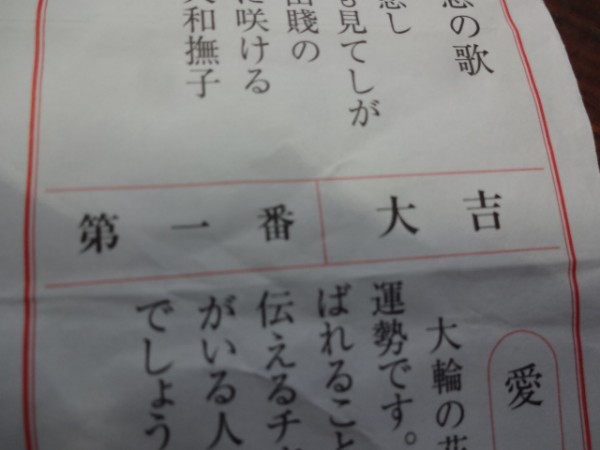 恋の歌
恋し
も見てしが
山賤の
に咲ける
大和撫子
第一番 大吉
愛
大輪の花
運勢です。
ばれること
伝えるチャ
がいる人
でしょう